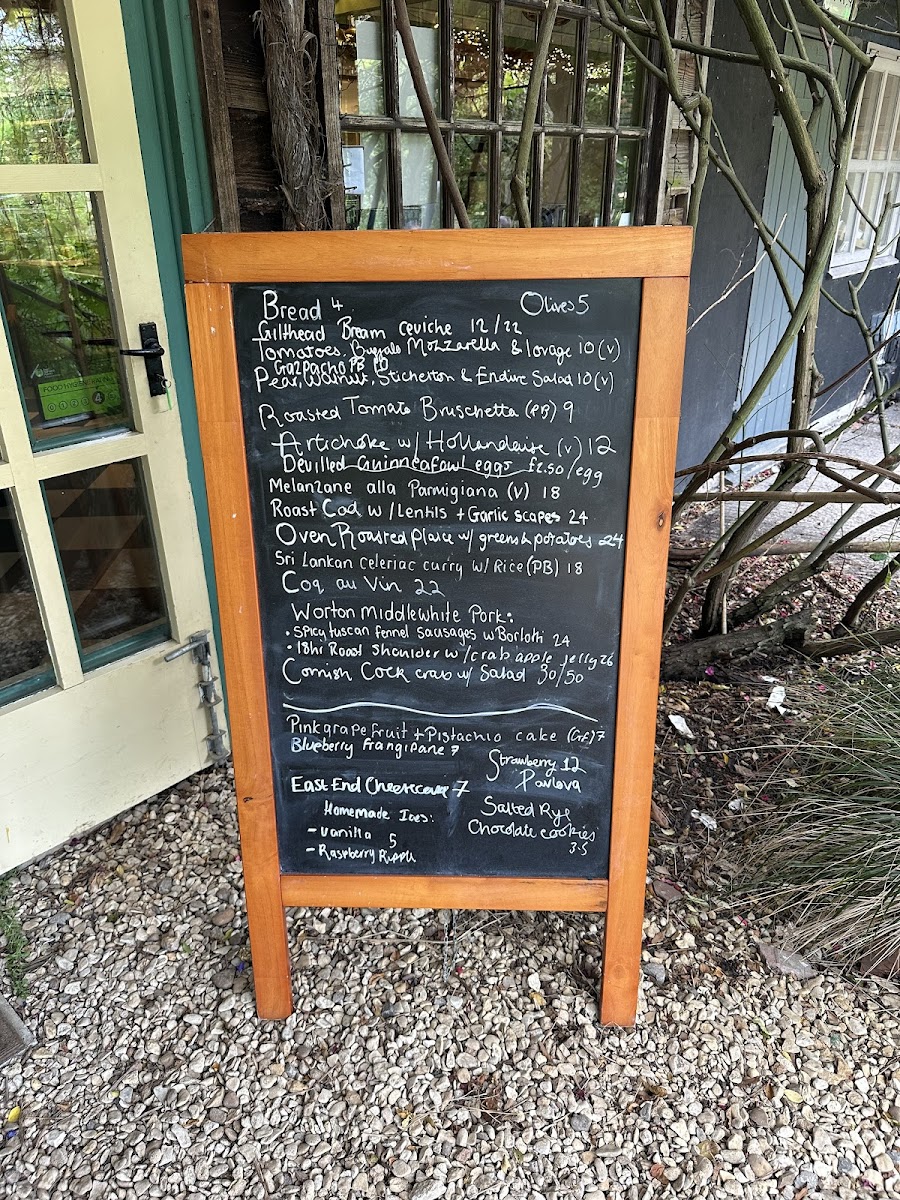 Bread 4 Olives 5
Gillthead Bream Ceviche 12/22
Tomatoes, Buffalo Mozzarella & lovage 10 (v)
Gazpacho PB 10
Pear, Walnut, Stichelton & Endive Salad 10 (v)
Roasted Tomato Bruschetta (PB) 9
Artichoke w/ Hollandaise (v) 12
Devilled Guinneafowl eggs £2.50/egg
Melanzane alla Parmigiana (v) 18
Roast Cod w/ Lentils + Garlic scapes 24
Oven Roasted plaice w/ greens & potatoes 24
Sri Lankan celeriac curry w/ Rice (PB) 18
Coq au Vin 22
Worton Middlewhite Pork:
• Spicy tuscan fennel sausages w Borlotti 24
• 18hr Roast Shoulder w/ crab apple jelly 26
Cornish Cock crab w/ Salad 30/50
Pink grapefruit + Pistachio cake (GF) 7
Blueberry Frangipane 7
Strawberry 12
Pavlova
East End Cheesecake 7
Homemade Ices:
- Vanilla 5
- Raspberry Ripple
Salted Rye
Chocolate cookies
3.5
FOOD HYGIENE RATING
0 1 2 3 4 5